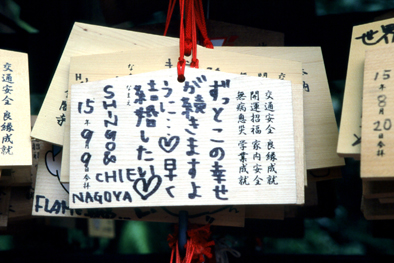 交通安全 良縁成就
開運招福 家内安全
無病息災 学業成就
ずっとこの幸せ
が続きますよ
うに…♡早く
結婚したい♡
なまえ
SHINGO&
CHIE
NAGOYA
15年9月9日参拝
世界
15年8月20日参拝
交通安全 良縁成就